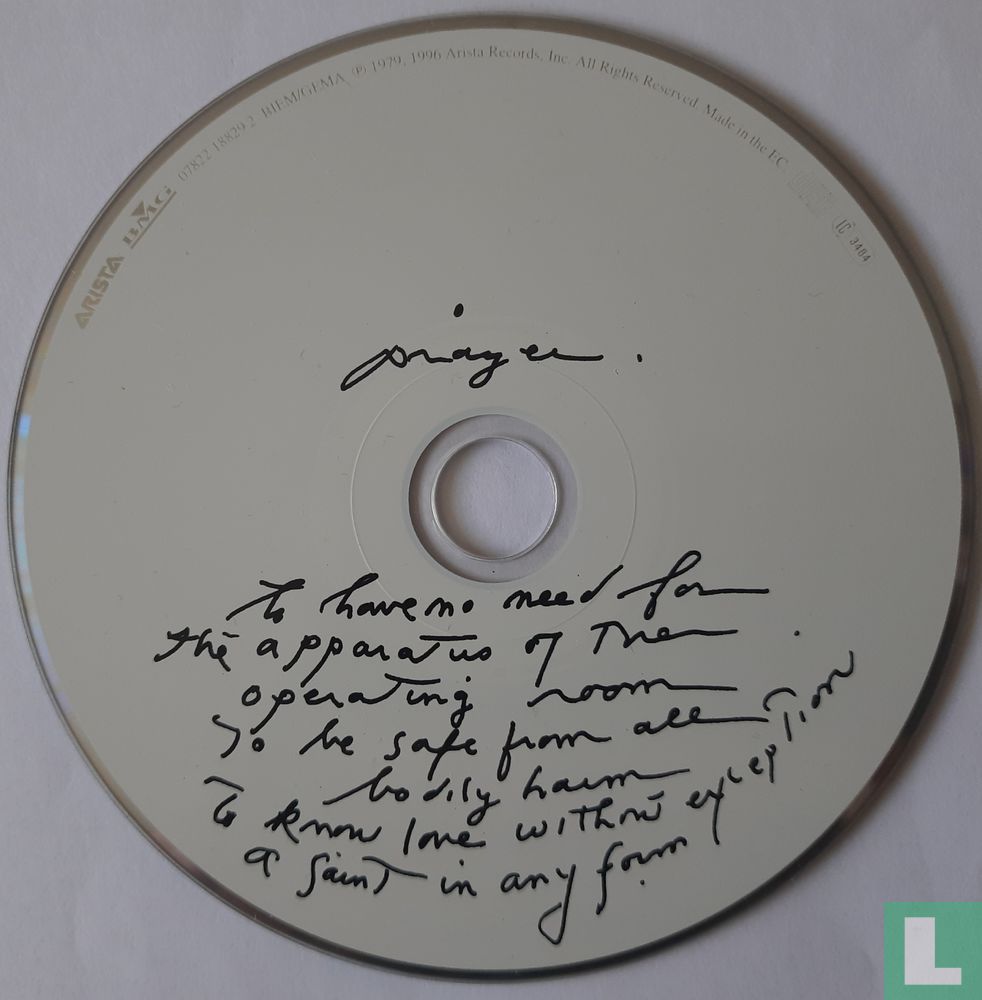 ARISTA BMG 07822 18829 2 BIEM/GEMA ℗ 1979, 1996 Arista Records, Inc. All Rights Reserved. Made in the EC.
IC 3484
prayer.
to have no need for
the apparatus of the
operating room
To be safe from all
bodily harm
to know love without exception
a saint in any form
L